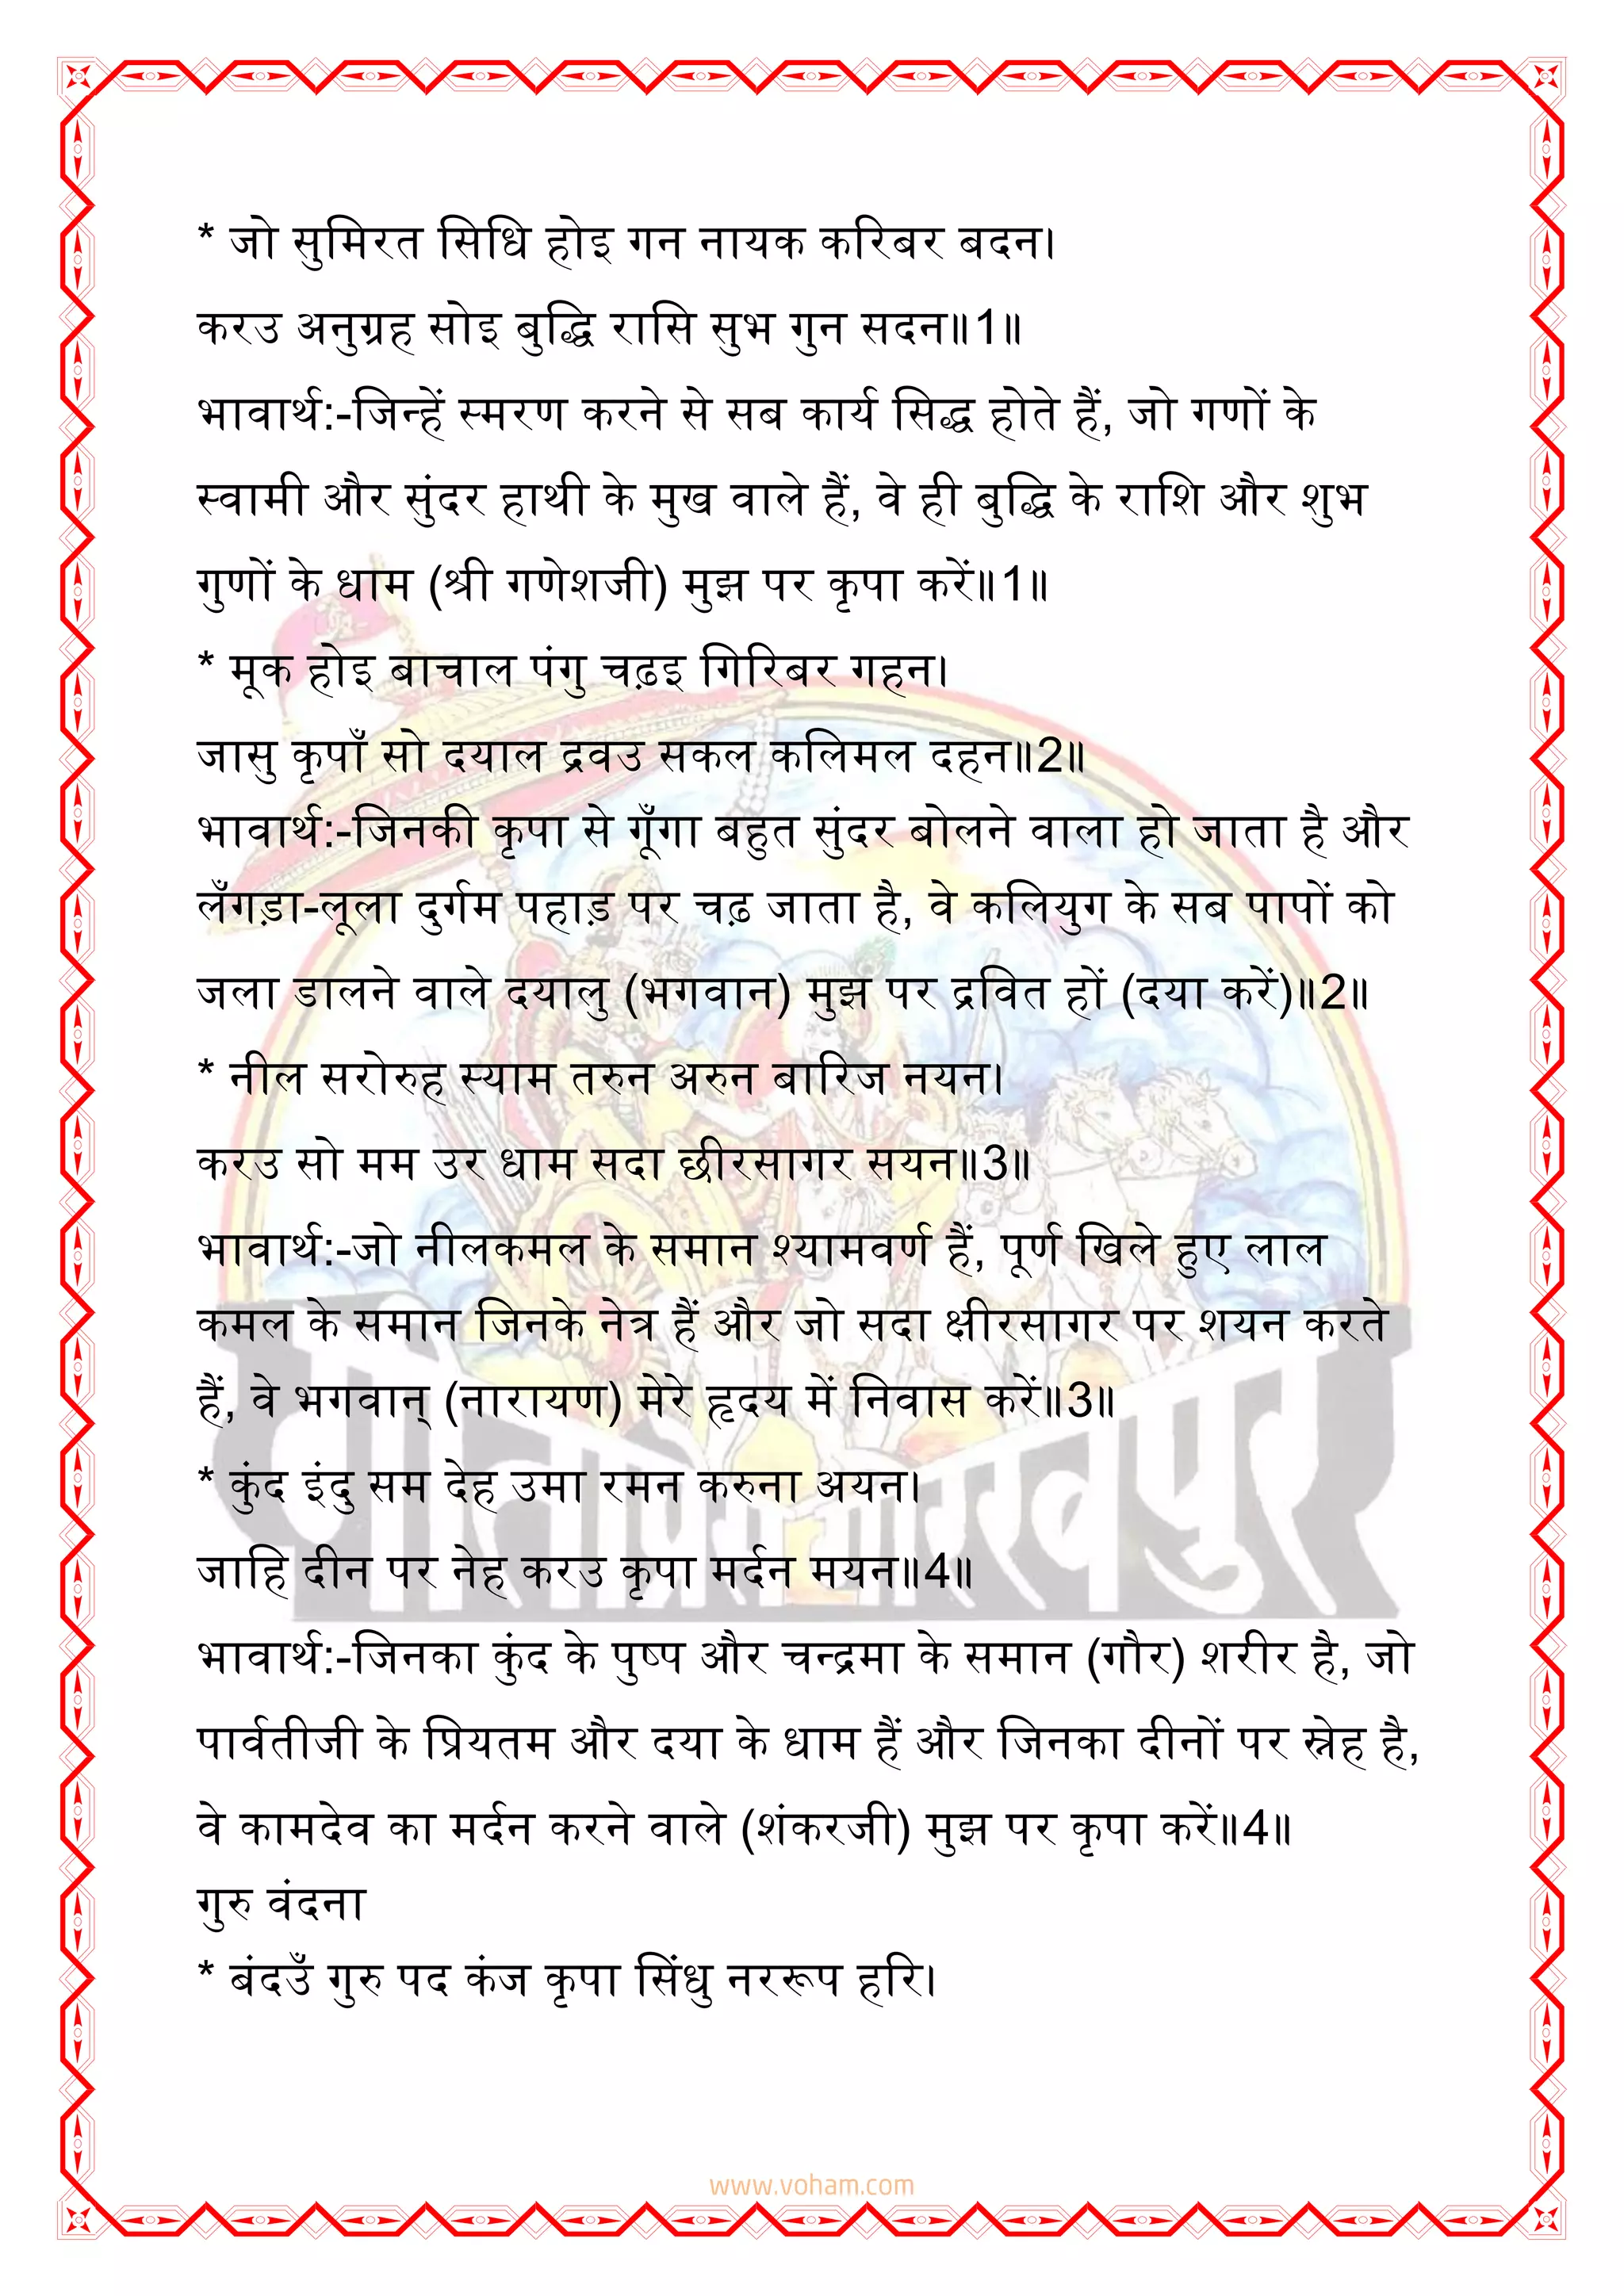 * जो सुमिरत सिधि होइ गन नायक करिबर बदन।
करउ अनुग्रह सोइ बुद्धि रासि सुभ गुन सदन॥1॥
भावार्थ:-जिन्हें स्मरण करने से सब कार्य सिद्ध होते हैं, जो गणों के
स्वामी और सुंदर हाथी के मुख वाले हैं, वे ही बुद्धि के राशि और शुभ
गुणों के धाम (श्री गणेशजी) मुझ पर कृपा करें॥1॥
* मूक होइ बाचाल पंगु चढ़इ गिरिबर गहन।
जासु कृपाँ सो दयाल द्रवउ सकल कलिमल दहन॥2॥
भावार्थ:-जिनकी कृपा से गूँगा बहुत सुंदर बोलने वाला हो जाता है और
लँगड़ा-लूला दुर्गम पहाड़ पर चढ़ जाता है, वे कलियुग के सब पापों को
जला डालने वाले दयालु (भगवान) मुझ पर द्रवित हों (दया करें)॥2॥
* नील सरोरुह स्याम तरुन अरुन बारिज नयन।
करउ सो मम उर धाम सदा छीरसागर सयन॥3॥
भावार्थ:-जो नीलकमल के समान श्यामवर्ण हैं, पूर्ण खिले हुए लाल
कमल के समान जिनके नेत्र हैं और जो सदा क्षीरसागर पर शयन करते
हैं, वे भगवान् (नारायण) मेरे हृदय में निवास करें॥3॥
* कुंद इंदु सम देह उमा रमन करुना अयन।
जाहि दीन पर नेह करउ कृपा मर्दन मयन॥4॥
भावार्थ:-जिनका कुंद के पुष्प और चन्द्रमा के समान (गौर) शरीर है, जो
पार्वतीजी के प्रियतम और दया के धाम हैं और जिनका दीनों पर स्नेह है,
वे कामदेव का मर्दन करने वाले (शंकरजी) मुझ पर कृपा करें॥4॥
गुरु वंदना
* बंदउँ गुरु पद कंज कृपा सिंधु नररूप हरि।
गीताप्रेस गोरखपुर
www.voham.com